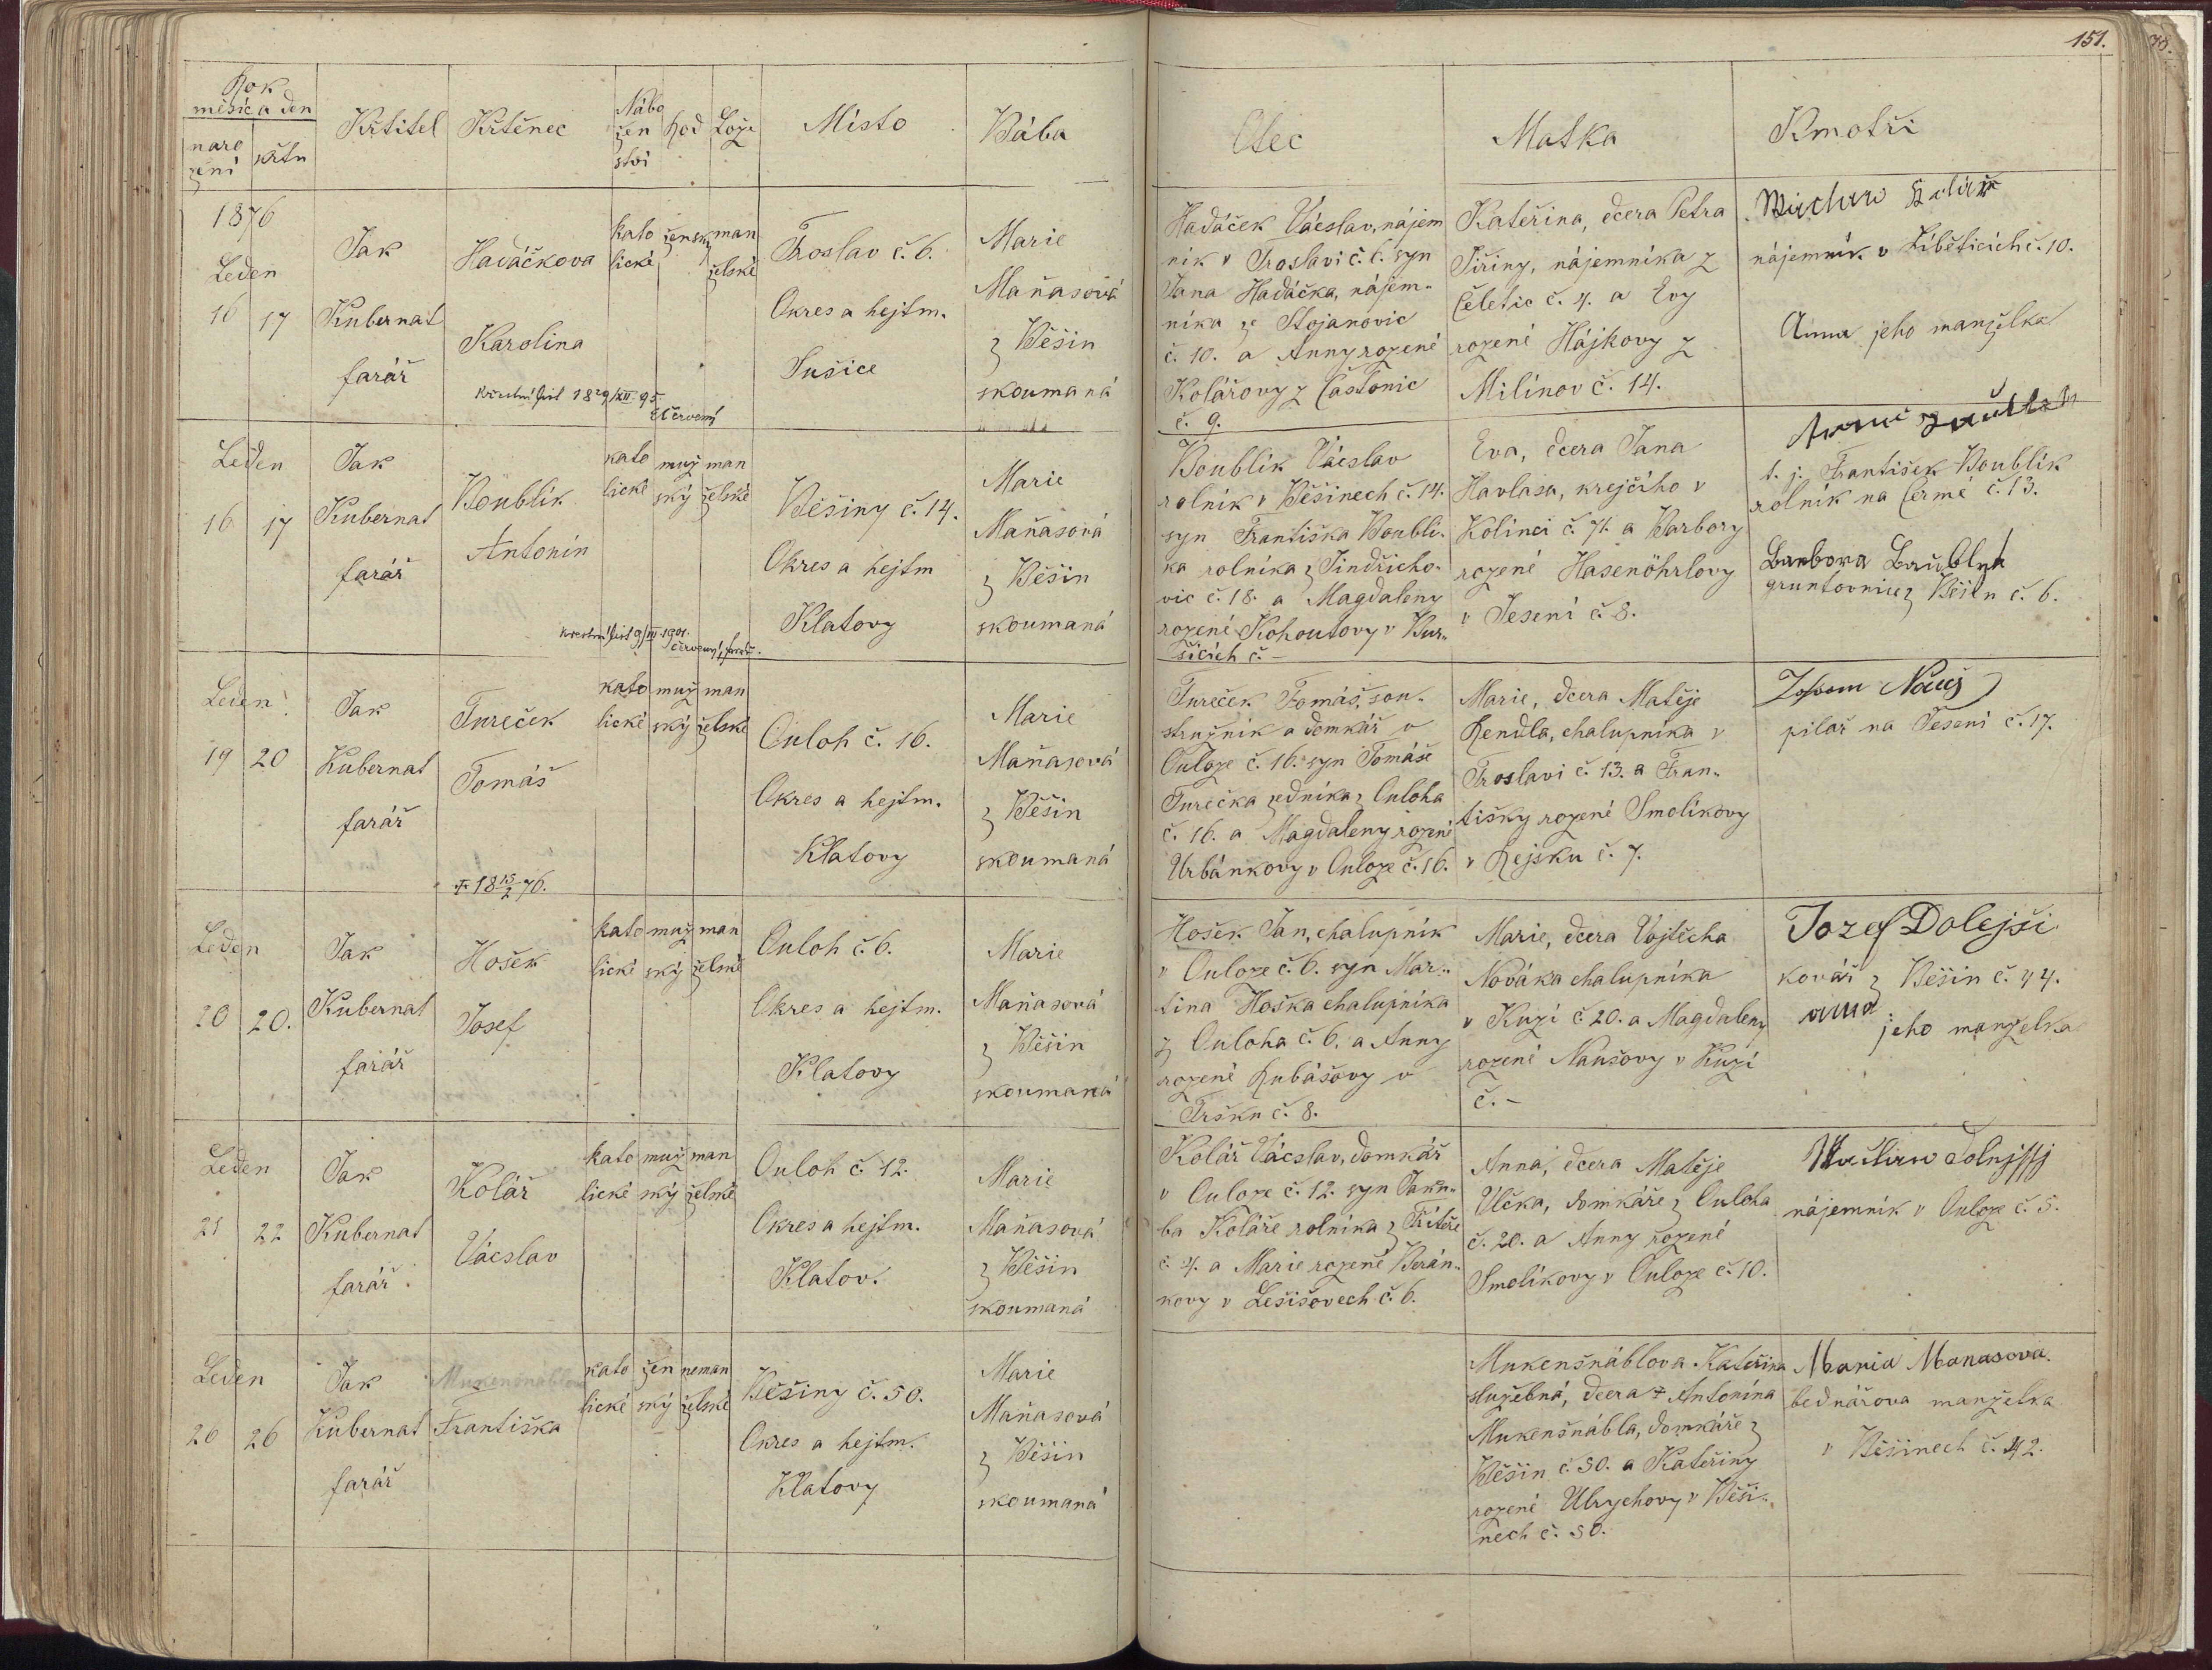 151.
Rok
měsíc a den
naro
zení
křtu
Křtitel
Křtěnec
Nábo
žen
ství
Rod
Lože
Místo
Bába
Otec
Matka
Kmotři
1876
Leden
16
17
Jak
Kubernat
farář
Hadáčkova
Karolina
Křestní list 18 29/XII 95
kato
lické
žensk
man
želské
Troslav č. 6.
Okres a hejtm.
Sušice
Marie
Maňasová
z Běšin
skoumaná
Hadáček Vácslav, nájem
ník v Troslavi č. 6. syn
Jana Hadáčka, nájem-
níka ze Stojanovic
č. 10. a Anny rozené
Kolářovy z Častonic
č. 9.
Kateřina, dcera Petra
Jiřiny, nájemníka z
Čeletic č. 4. a Evy
rozené Hájkovy z
Milínov č. 14.
nájemník v Liběticích č. 10.
Anna jeho manželka
Leden
16
17
Jak
Kubernat
farář
Boublík
Antonín
Křestní list 9/III 1901.
Červený, farář.
kato
lické
muž
ský
man
želské
Běšiny č. 14.
Okres a hejtm
Klatovy
Marie
Maňasová
z Běšin
skoumaná
Boublík Vácslav
rolník v Běšinech č. 14.
syn Františka Boublí-
ka rolníka z Jindřicho-
vic č. 18. a Magdaleny
rozené Kohoutovy v Bur-
šicích č. -
Eva, dcera Jana
Havlasa, krejčího v
Kolinci č. 71. a Barbory
rozené Hasenöhrlovy
v Jesení č. 8.
t. j. František Boublík
rolník na Čermé č. 13.
Barbora
gruntovnice z Běšin č. 6.
Leden
19
20
Jak
Kubernat
farář
Tureček
Tomáš
† 18 15/2 76.
kato
lické
muž
ský
man
želské
Ouloh č. 16.
Okres a hejtm.
Klatovy
Marie
Maňasová
z Běšin
skoumaná
Tureček Tomáš, sou-
stružník a domkář v
Ouloze č. 16. syn Tomáše
Turečka zedníka z Ouloha
č. 16. a Magdaleny rozené
Urbánkovy v Ouloze č. 16.
Marie, dcera Matěje
Rendla, chalupníka v
Troslavi č. 13. a Fran-
tišky rozené Smolíkovy
v Rejsku č. 7.
pilař na Jesení č. 17.
Leden
20
20.
Jak
Kubernat
farář
Hošek
Josef
kato
lické
muž
ský
man
želské
Ouloh č. 6.
Okres a hejtm.
Klatovy
Marie
Maňasová
z Běšin
skoumaná
Hošek Jan, chalupník
v Ouloze č. 6. syn Mar-
tina Hoška chalupníka
z Ouloha č. 6. a Anny
rozené Rubášovy v
Tršku č. 8.
Marie, dcera Vojtěcha
Nováka chalupníka
v Kuzí č. 20. a Magdaleny
rozené Naušovy v Kuzí
č. -
Jozef Dolejši
kovář z Běšin č. 44.
anna
jeho manželka
Leden
21
22
Jak
Kubernat
farář
Kolář
Vácslav
kato
lické
muž
ský
man
želské
Ouloh č. 12.
Okres a hejtm.
Klatov.
Marie
Maňasová
z Běšin
skoumaná
Kolář Vácslav, domkář
v Ouloze č. 12. syn Jaku-
ba Koláře rolníka z
č. 4. a Marie rozené Berán-
kovy v Lešišovech č. 6.
Anna, dcera Matěje
Vlčka, domkáře z Ouloha
č. 20. a Anny rozené
Smolíkovy v Ouloze č. 10.
nájemník v Ouloze č. 5.
Leden
26
26
Jak
Kubernat
farář
Mukenšnáblova
Františka
kato
lické
žen
ský
neman
želské
Běšiny č. 50.
Okres a hejtm.
Klatovy
Marie
Maňasová
z Běšin
skoumaná
Mukenšnáblova Kateřina
služebná, dcera † Antonína
Mukenšnábla, domkáře z
Běšin č. 50. a Kateřiny
rozené Ulrychovy v Běši-
nech č. 50.
Maria Manasova
bednářova manželka
v Běšinech č. 42.